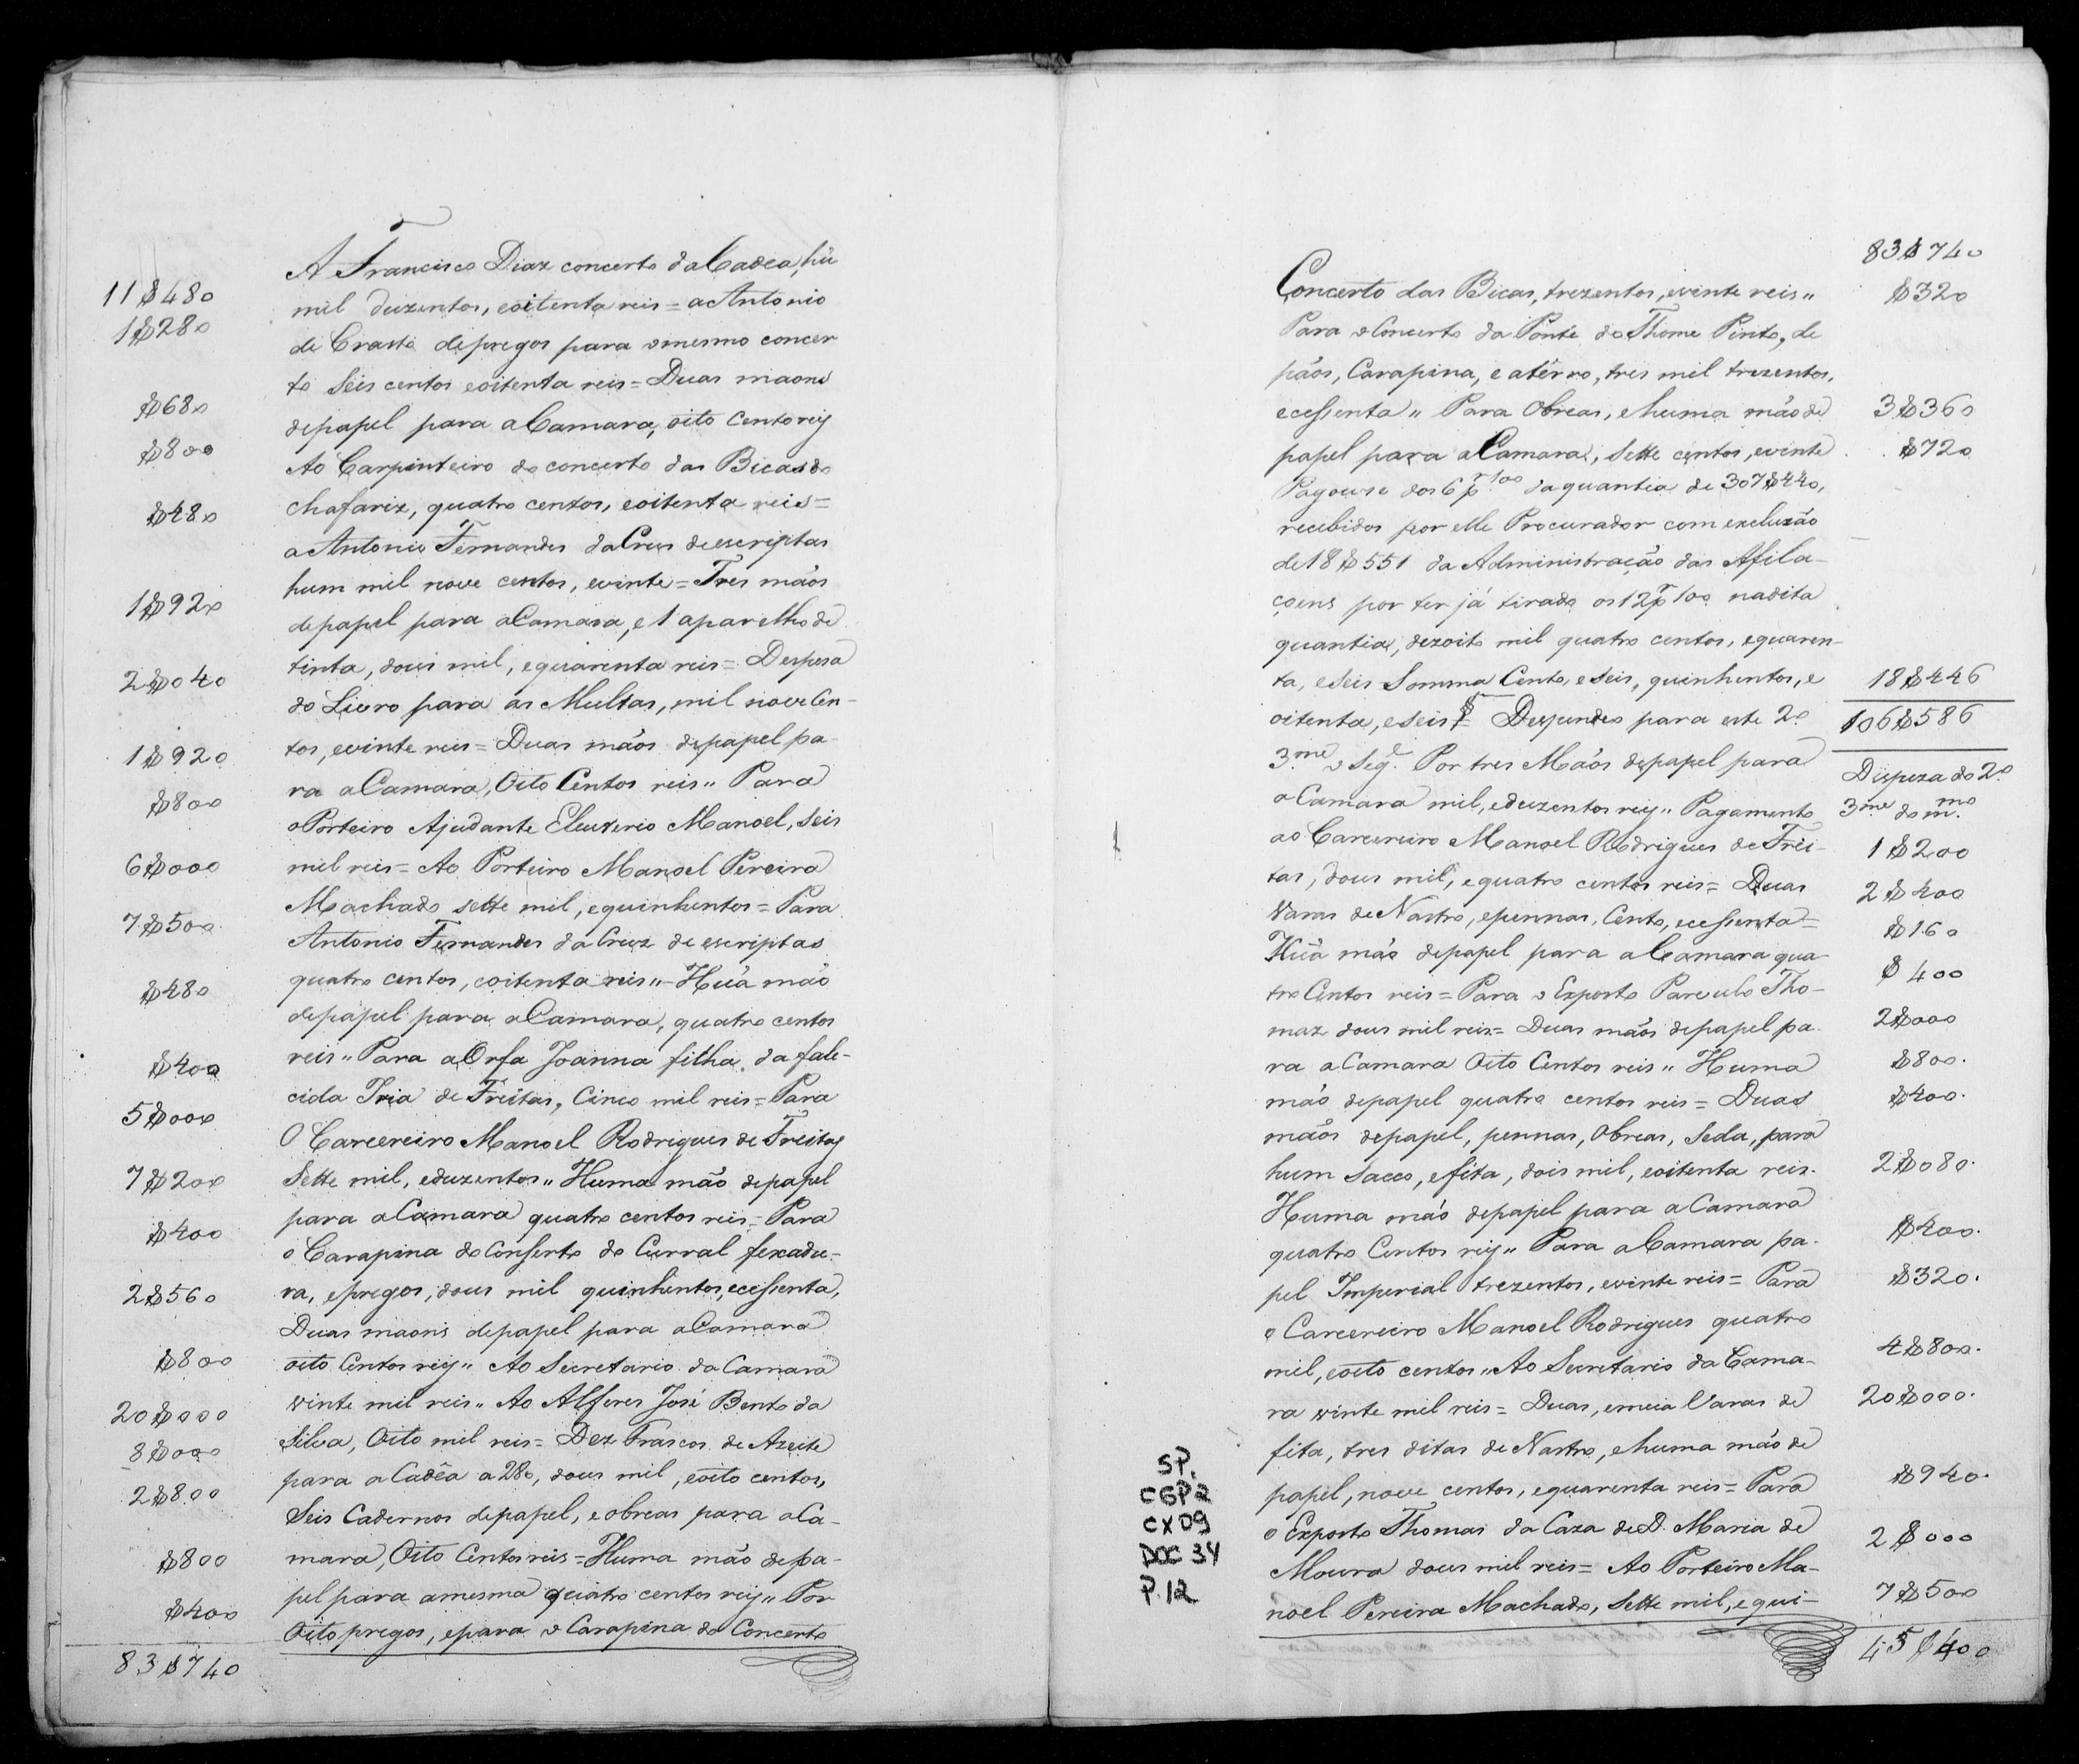 A Francisco Diaz concerto da Cadea, hũ
11$480 mil duzentos, eoitenta reis = a Antonio
1$280 de Crasto depregos para omesmo concer
to Seis centos eoitenta reis = Duas maons
$680 depapel para aCamara, oito Cento reis
$800 Ao Carpinteiro do concerto das Bicas do
$480 chafariz, quatro centos, eoitenta reis =
a Antonio Fernandes daCruz deescriptas
hum mil nove centos, evinte = Tres mãos
1$920 depapel para aCamara, e 1 aparelho de
tinta, dous mil, equarenta reis = Despesa
2$040 do Livro para as Multas, mil noveCen-
tos, evinte reis = Duas mãos depapel pa-
1$920 ra aCamara, Oito Centos reis " Para
$800 oPorteiro Ajudante Eleuterio Manoel, Seis
6$000 mil reis = Ao Porteiro Manoel Pereira
Machado sette mil, equinhentos = Para
7$500 Antonio Fernandes da Cruz de escriptas
$480 quatro centos, eoitenta reis " Hũa mão
depapel para aCamara, quatro centos
$400 reis " Para aOrfa Joanna filha da fale-
cida Iria de Freitas, Cinco mil reis = Para
5$000 O Carcereiro Manoel Rodrigues de Freitas
7$200 Sette mil, eduzentos " Huma mão depapel
para aCamara quatro centos reis = Para
$400 o Carapina do Conserto do Curral fexadu-
2$560 ra, epregos, dous mil quinhentos, ecessenta,
Duas maons depapel para aCamara
$800 oito Centos reis " Ao Secretario da Camara
20$000 vinte mil reis " Ao Alferes José Bento da
8$000 Silva, Oito mil reis = Dez Frascos de Azeite
2$800 para a Cadêa a 280, dous mil, eoito centos,
Seis Cadernos depapel, eobreas para aCa-
$800 mara, Oito Centos reis = Huma mão depa-
$400 pel para amesma quatro centos reis " Por
Oito pregos, epara o Carapina do Concerto
83$740
83$740
Concerto das Bicas, trezentos, evinte reis " $320
Para oConcerto da Ponte do Thome Pinto, de
páos, Carapina, e atêrro, tres mil trezentos,
ecessenta " Para Obreas, ehuma mão de 3$360
papel para aCamara, Sette centos, evinte $720
Pagouse dos 6 p.r 100 daquantia de 307$440,
recebidos por elle Procurador com excluzão
de 18$551 da Administração das Afila-
çoens por ter já tirado os 12 p.r 100 nadita
quantia, dezoito mil quatro centos, equaren-
ta, eSeis Somma Cento, eSeis, quinhentos, e 18$446
oitenta, eseis = Despendeo para este 2.o 106$586
3.me o Seg.e Por tres Mãos depapel para Dispeza do 2.o
aCamara mil, eduzentos reis " Pagamento 3.me do m.mo
ao Carcereiro Manoel Rodrigues de Frei- 1$200
tas, dous mil, equatro centos reis = Duas 2$400
Varas de Nastro, epennas, Cento, ecessenta = $160
Hũa mão depapel para aCamara qua- $400
tro Centos reis = Para o Exposto Parvulo Tho-
maz dous mil reis = Duas mãos depapel pa- 2$000
ra aCamara Oito Centos reis " Huma $800.
mão depapel quatro centos reis = Duas $400.
mãos depapel, pennas, Obreas, Seda, para
hum Sacco, efita, dois mil, eoitenta reis. 2$080.
Huma mão depapel para aCamara
quatro Centos reis " Para aCamara pa- $400.
pel Imperial trezentos, evinte reis = Para $320.
o Carcereiro Manoel Rodrigues quatro
mil, eoito centos " Ao Secretario da Cama- 4$800.
ra vinte mil reis = Duas, emeia Varas de 20$000.
fita, tres ditas de Nastro, ehuma mão de
papel, nove centos, equarenta reis = Para $940.
o Exposto Thomas da Caza de D. Maria de
Moura dous mil reis = Ao Porteiro Ma- 2$000
noel Pereira Machado, Sette mil, equi- 7$500
45$400
SP.
CGP2
CX09
DOC 34
P.12